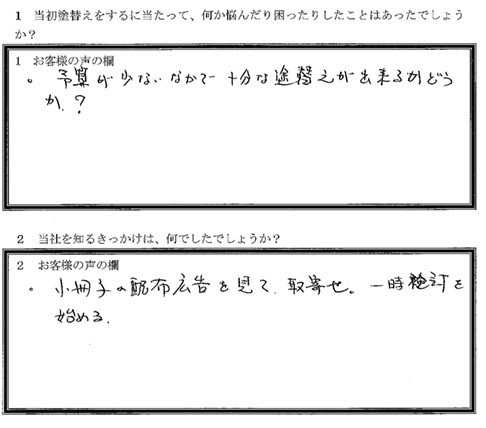 1 当初塗替えをするに当たって、何か悩んだり困ったりしたことはあったでしょう
か？
1 お客様の声の欄
。予算が少ないなかで十分な塗替えが出来るかどう
か.？
2 当社を知るきっかけは、何でしたでしょうか？
2 お客様の声の欄
。小冊子の配布広告を見て、取寄せ。一時検討を
始める.